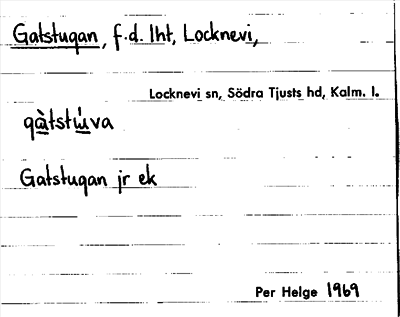 Gatstugan, f.d. lht, Locknevi,
Locknevi sn, Södra Tjusts hd, Kalm. l.
gàtstúva
Gatstugan jr ek
Per Helge 1969